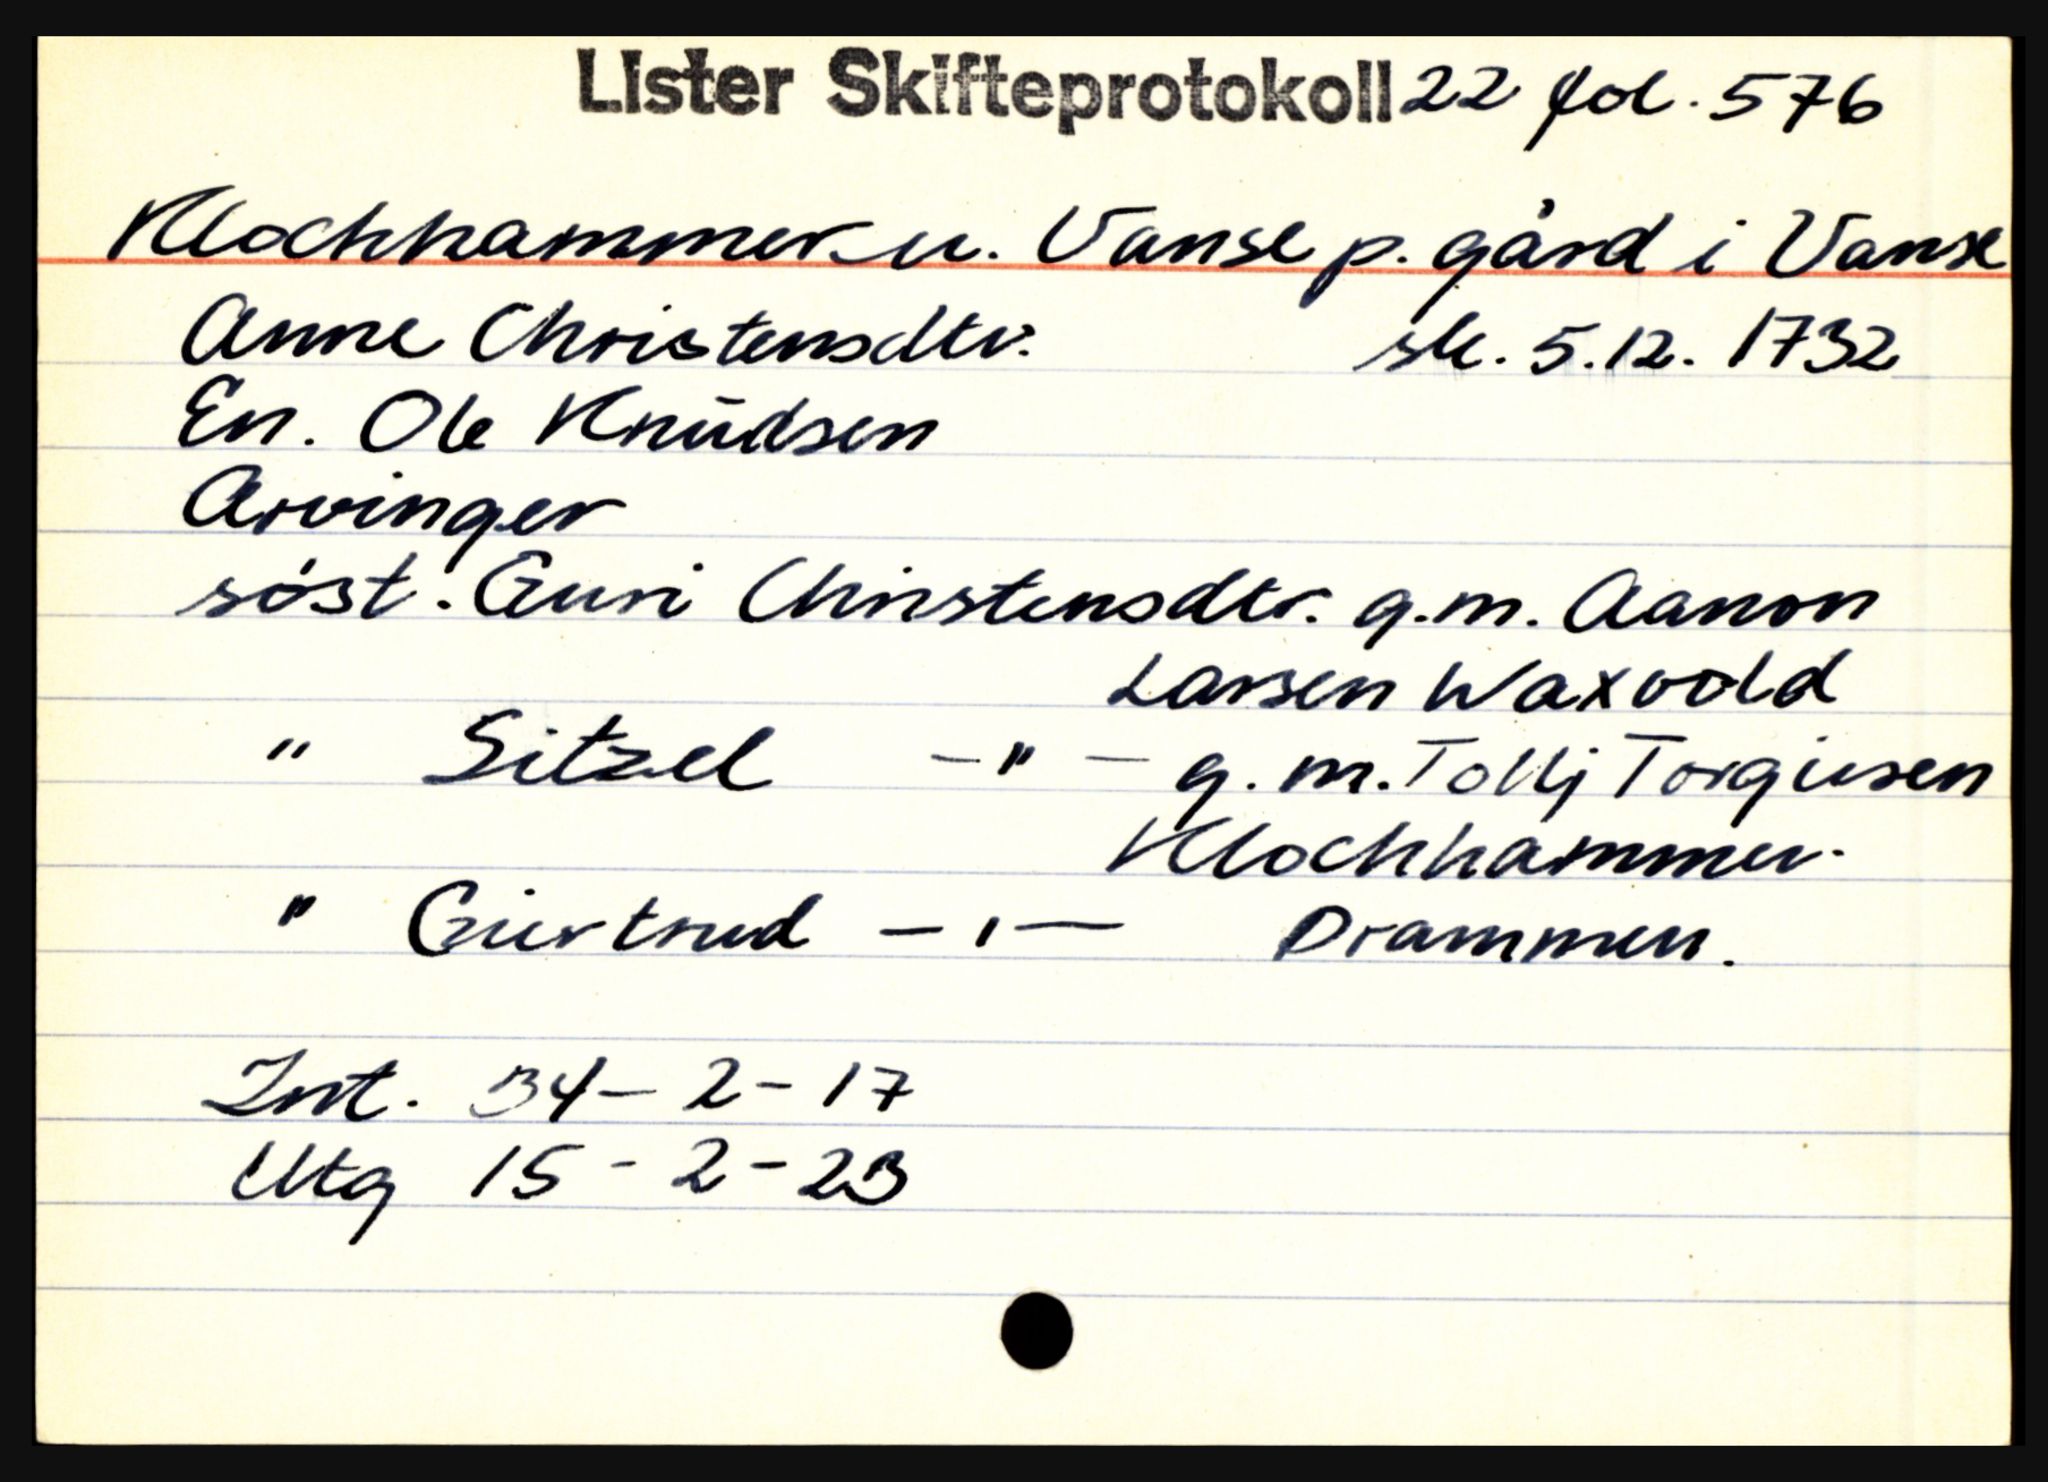 Lister Skifteprotokoll 22 fol. 576
Klochhammer u. Vanse p. gård i Vanse
Anne Christensdtr. sk. 5.12. 1732
En. Ole Knudsen
Arvinger
søst. Guri Christensdtr. g.m. Aanon
Larsen Waxvold
" Sitzel -"- g.m. Tollj Torgiusen
Klochhammer.
" Giertrud -"- Drammen.
Int. 34 - 2 - 17
Utg 15 - 2 - 23